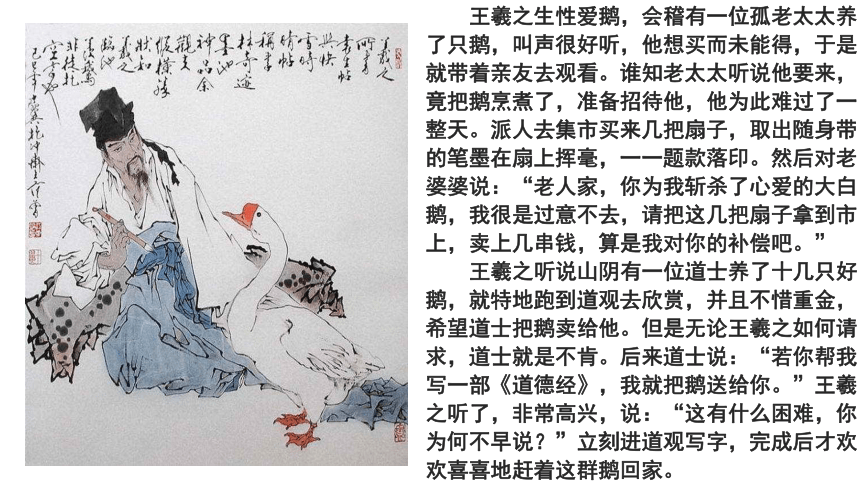 王羲之生性爱鹅，会稽有一位孤老太太养
了只鹅，叫声很好听，他想买而未能得，于是
就带着亲友去观看。谁知老太太听说他要来，
竟把鹅烹煮了，准备招待他，他为此难过了一
整天。派人去集市买来几把扇子，取出随身带
的笔墨在扇上挥毫，一一题款落印。然后对老
婆婆说：“老人家，你为我斩杀了心爱的大白
鹅，我很是过意不去，请把这几把扇子拿到市
上，卖上几串钱，算是我对你的补偿吧。”
王羲之听说山阴有一位道士养了十几只好
鹅，就特地跑到道观去欣赏，并且不惜重金，
希望道士把鹅卖给他。但是无论王羲之如何请
求，道士就是不肯。后来道士说：“若你帮我
写一部《道德经》，我就把鹅送给你。”王羲
之听了，非常高兴，说：“这有什么困难，你
为何不早说？”立刻进道观写字，完成后才欢
欢喜喜地赶着这群鹅回家。